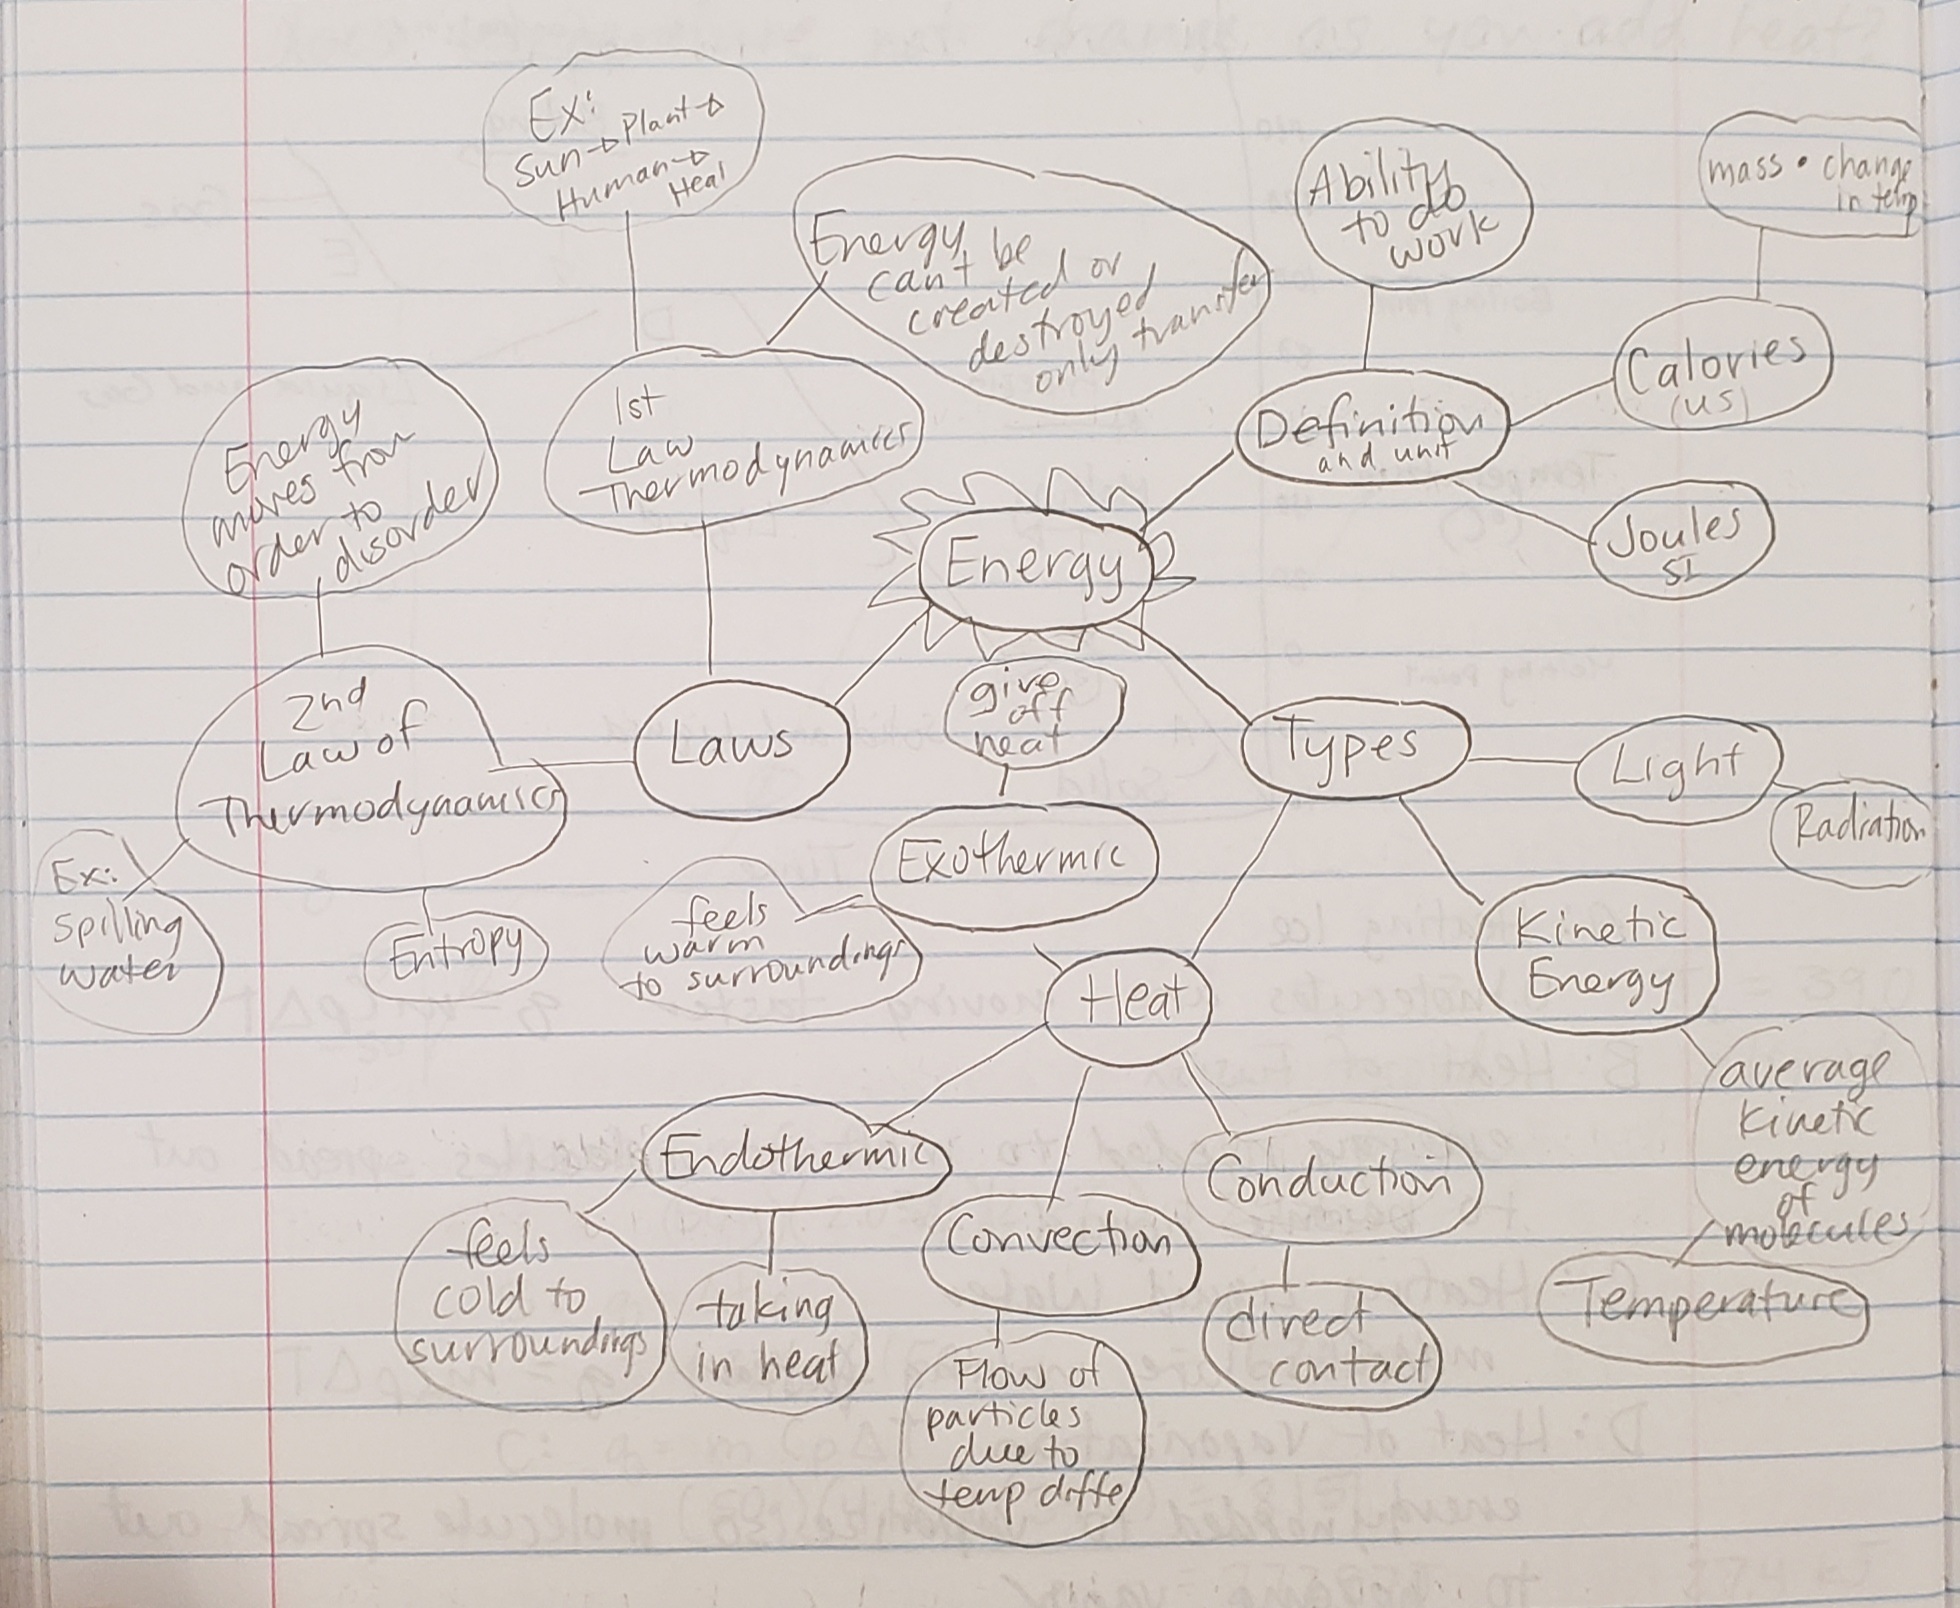 Ex:
Sun → Plant →
Human →
Heat
Energy
can't be
created or
destroyed
only transfer
Ability
to do
work
mass • change
in temp
Calories
(US)
Definition
and unit
Joules
SI
1st
Law
Thermodynamics
Energy
moves from
order to
disorder
Energy
2nd
Law of
Thermodynamics
Laws
give
off
heat
Types
Light
Radiation
Ex:
spilling
water
Entropy
Exothermic
feels
warm
to surroundings
Heat
Kinetic
Energy
average
kinetic
energy
of
molecules
Temperature
Endothermic
feels
cold to
surroundings
taking
in heat
Convection
Flow of
particles
due to
temp diffe
Conduction
direct
contact